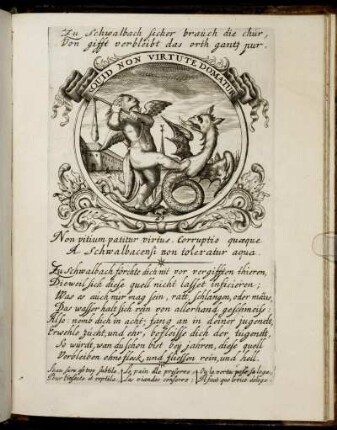 Zu Schwalbach sicher brauch die chür,
Von gifft verbleibt das orth gantz pur.
QUID NON VIRTUTE DOMATUR
Non vitium patitur virtus. Corruptio quæque
A Schwalbacensi non toleratur aqua.
Zu Schwalbach förchte dich nit vor vergifften thieren,
Dieweil sich diese quell nicht lasset inficieren;
Was es auch nur mag sein, ratt, schlangen, oder mäus,
Das wasser halt sich rein von allerhand geschmeiss:
Also nemb dich in acht, fäng an in deiner jugendt,
Erwehle zücht, und ehr, befleisse dich der tugendt,
So würdt, wan du schon bist bey jahren, diese quell
Verbleiben ohne fleck, und fliessen rein, und hell.